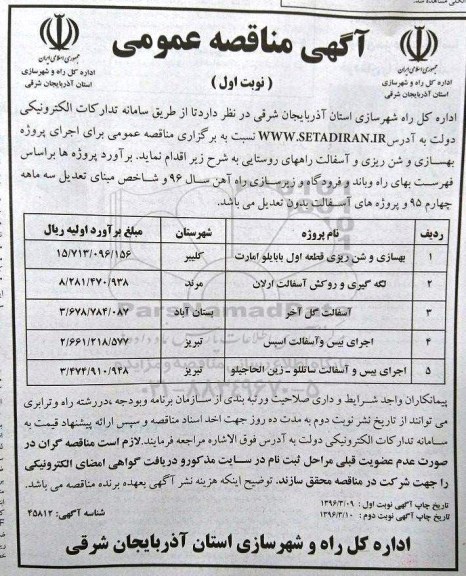 آگهی مناقصه عمومی
( نوبت اول )
جمهوری اسلامی ایران
اداره کل راه و شهرسازی
استان آذربایجان شرقی
جمهوری اسلامی ایران
اداره کل راه و شهرسازی
استان آذربایجان شرقی
اداره کل راه شهرسازی استان آذربایجان شرقی در نظر دارد تا از طریق سامانه تدارکات الکترونیکی
دولت به آدرس WWW.SETADIRAN.IR نسبت به برگزاری مناقصه عمومی برای اجرای پروژه
بهسازی و شن ریزی و آسفالت راههای روستایی به شرح زیر اقدام نماید. برآورد پروژه ها براساس
فهرست بهای راه وباند و فرودگاه و زیرسازی راه آهن سال ۹۶ و شاخص مبنای تعدیل سه ماهه
چهارم ۹۵ و پروژه های آسفالت بدون تعدیل می باشد.
ردیف نام پروژه شهرستان مبلغ برآورد اولیه ریال
۱ بهسازی و شن ریزی قطعه اول بابابلو امارت کلیبر ۱۵/۷۱۳/۰۹۶/۱۵۶
۲ لکه گیری و روکش آسفالت ارلان مرند ۸/۲۸۱/۴۷۰/۹۳۸
۳ آسفالت گل آخر بستان آباد ۳/۶۷۸/۷۸۴/۰۸۷
۴ اجرای بیس وآسفالت اسپس تبریز ۲/۶۶۱/۲۱۸/۵۷۷
۵ اجرای بیس و آسفالت ساتللو ـ زین الحاجیلو تبریز ۳/۴۷۴/۹۱۰/۹۴۸
پیمانکاران واجد شرایط و داری صلاحیت ورتبه بندی از سازمان برنامه وبودجه ،دررشته راه وترابری
می توانند از تاریخ نشر نوبت دوم به مدت ده روز جهت اخذ اسناد مناقصه و سپس ارائه پیشنهاد قیمت به
سامانه تدارکات الکترونیکی دولت به آدرس فوق الاشاره مراجعه فرمایند. لازم است مناقصه گران در
صورت عدم عضویت قبلی مراحل ثبت نام در سایت مذکورو دریافت گواهی امضای الکترونیکی
را جهت شرکت در مناقصه محقق سازند. توضیح اینکه هزینه نشر آگهی بعهده برنده مناقصه می باشد.
تاریخ چاپ آگهی نوبت اول : ۱۳۹۶/۳/۰۹
تاریخ چاپ آگهی نوبت دوم : ۱۳۹۶/۳/۱۰ شناسه آگهی: ۴۵۸۱۲
اداره کل راه و شهرسازی استان آذربایجان شرقی
ParsNamadData
۰۲۱-۸۸۳۴۹۶۷۰-۵